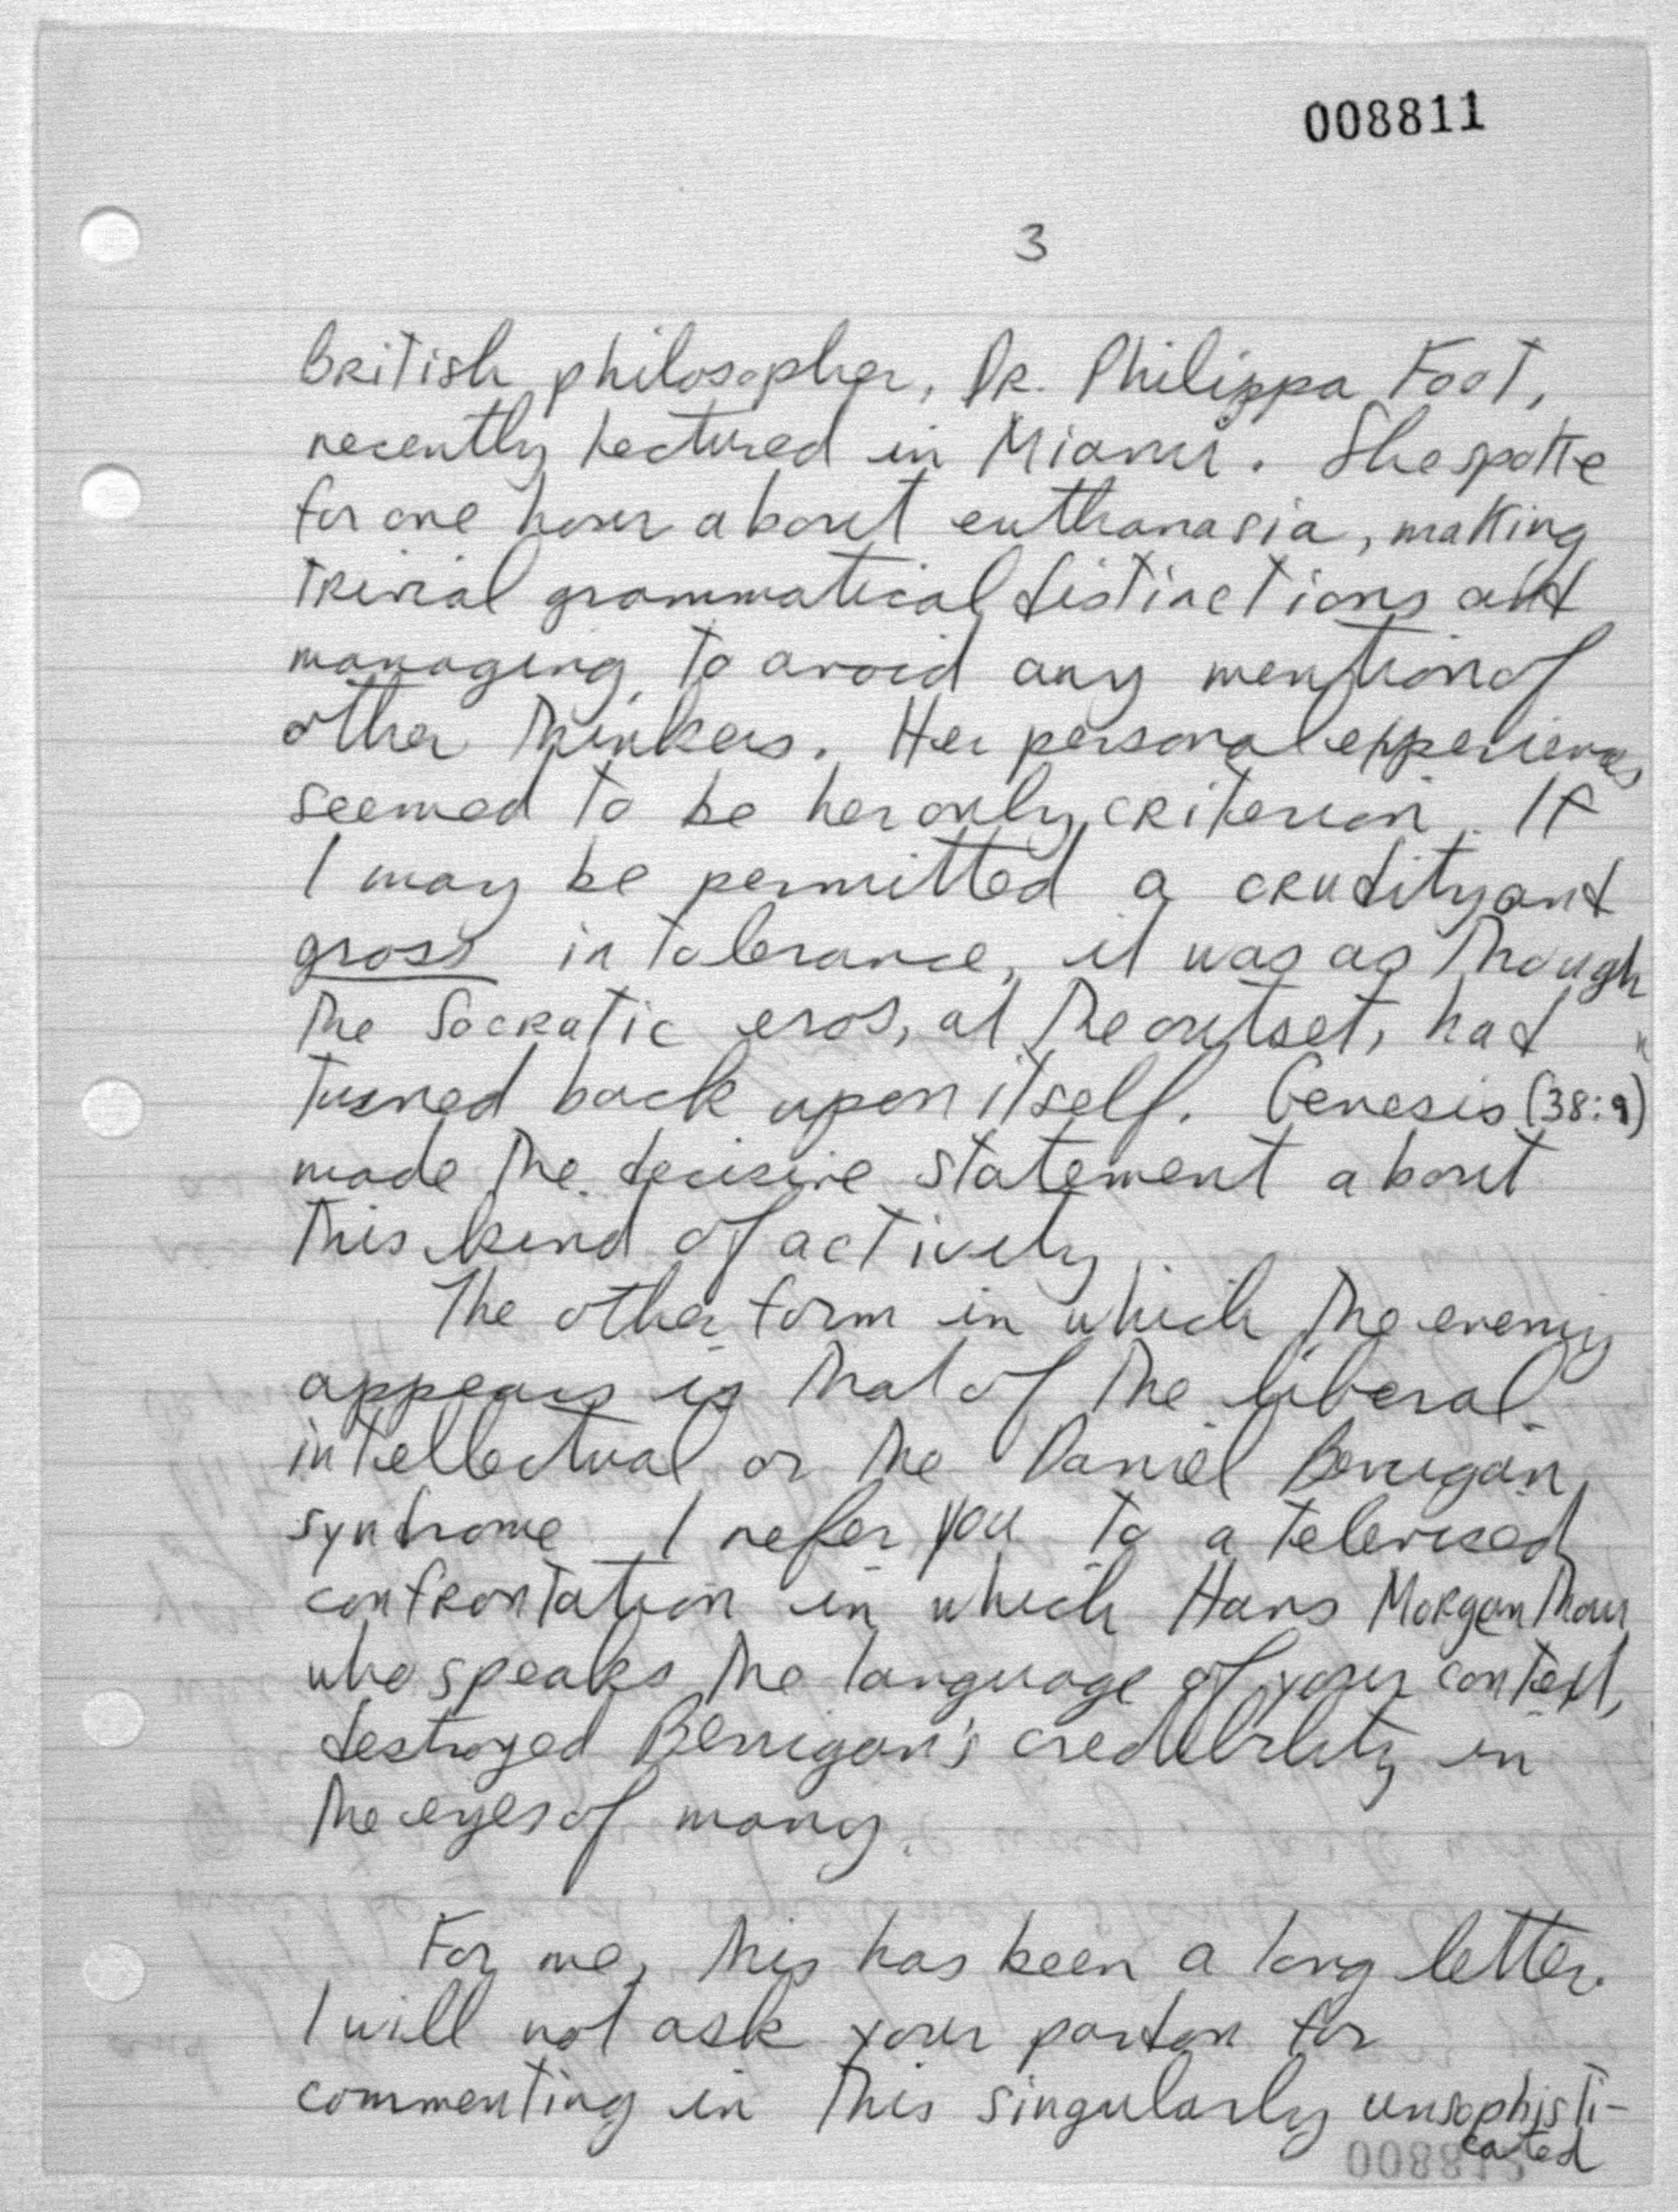 008811
3
British philosopher, Dr. Philippa Foot,
recently lectured in Miami. She spoke
for one hour about euthanasia, making
trivial grammatical distinctions and
managing to avoid any mention of
other thinkers. Her personal experiences
seemed to be her only criterion. If
I may be permitted a crudity and
gross intolerance, it was as though
the Socratic eros, at the outset, had
turned back upon itself. Genesis (38:9)
made the decisive statement about
this kind of activity.
The other form in which the enemy
appears is that of the liberal
intellectual or the Daniel Berrigan
syndrome. I refer you to a televised
confrontation in which Hans Morganthau
who speaks the language of your context,
destroyed Berrigan's credibility in
the eyes of many.
For me, this has been a long letter.
I will not ask your pardon for
commenting in this singularly unsophisti-
cated